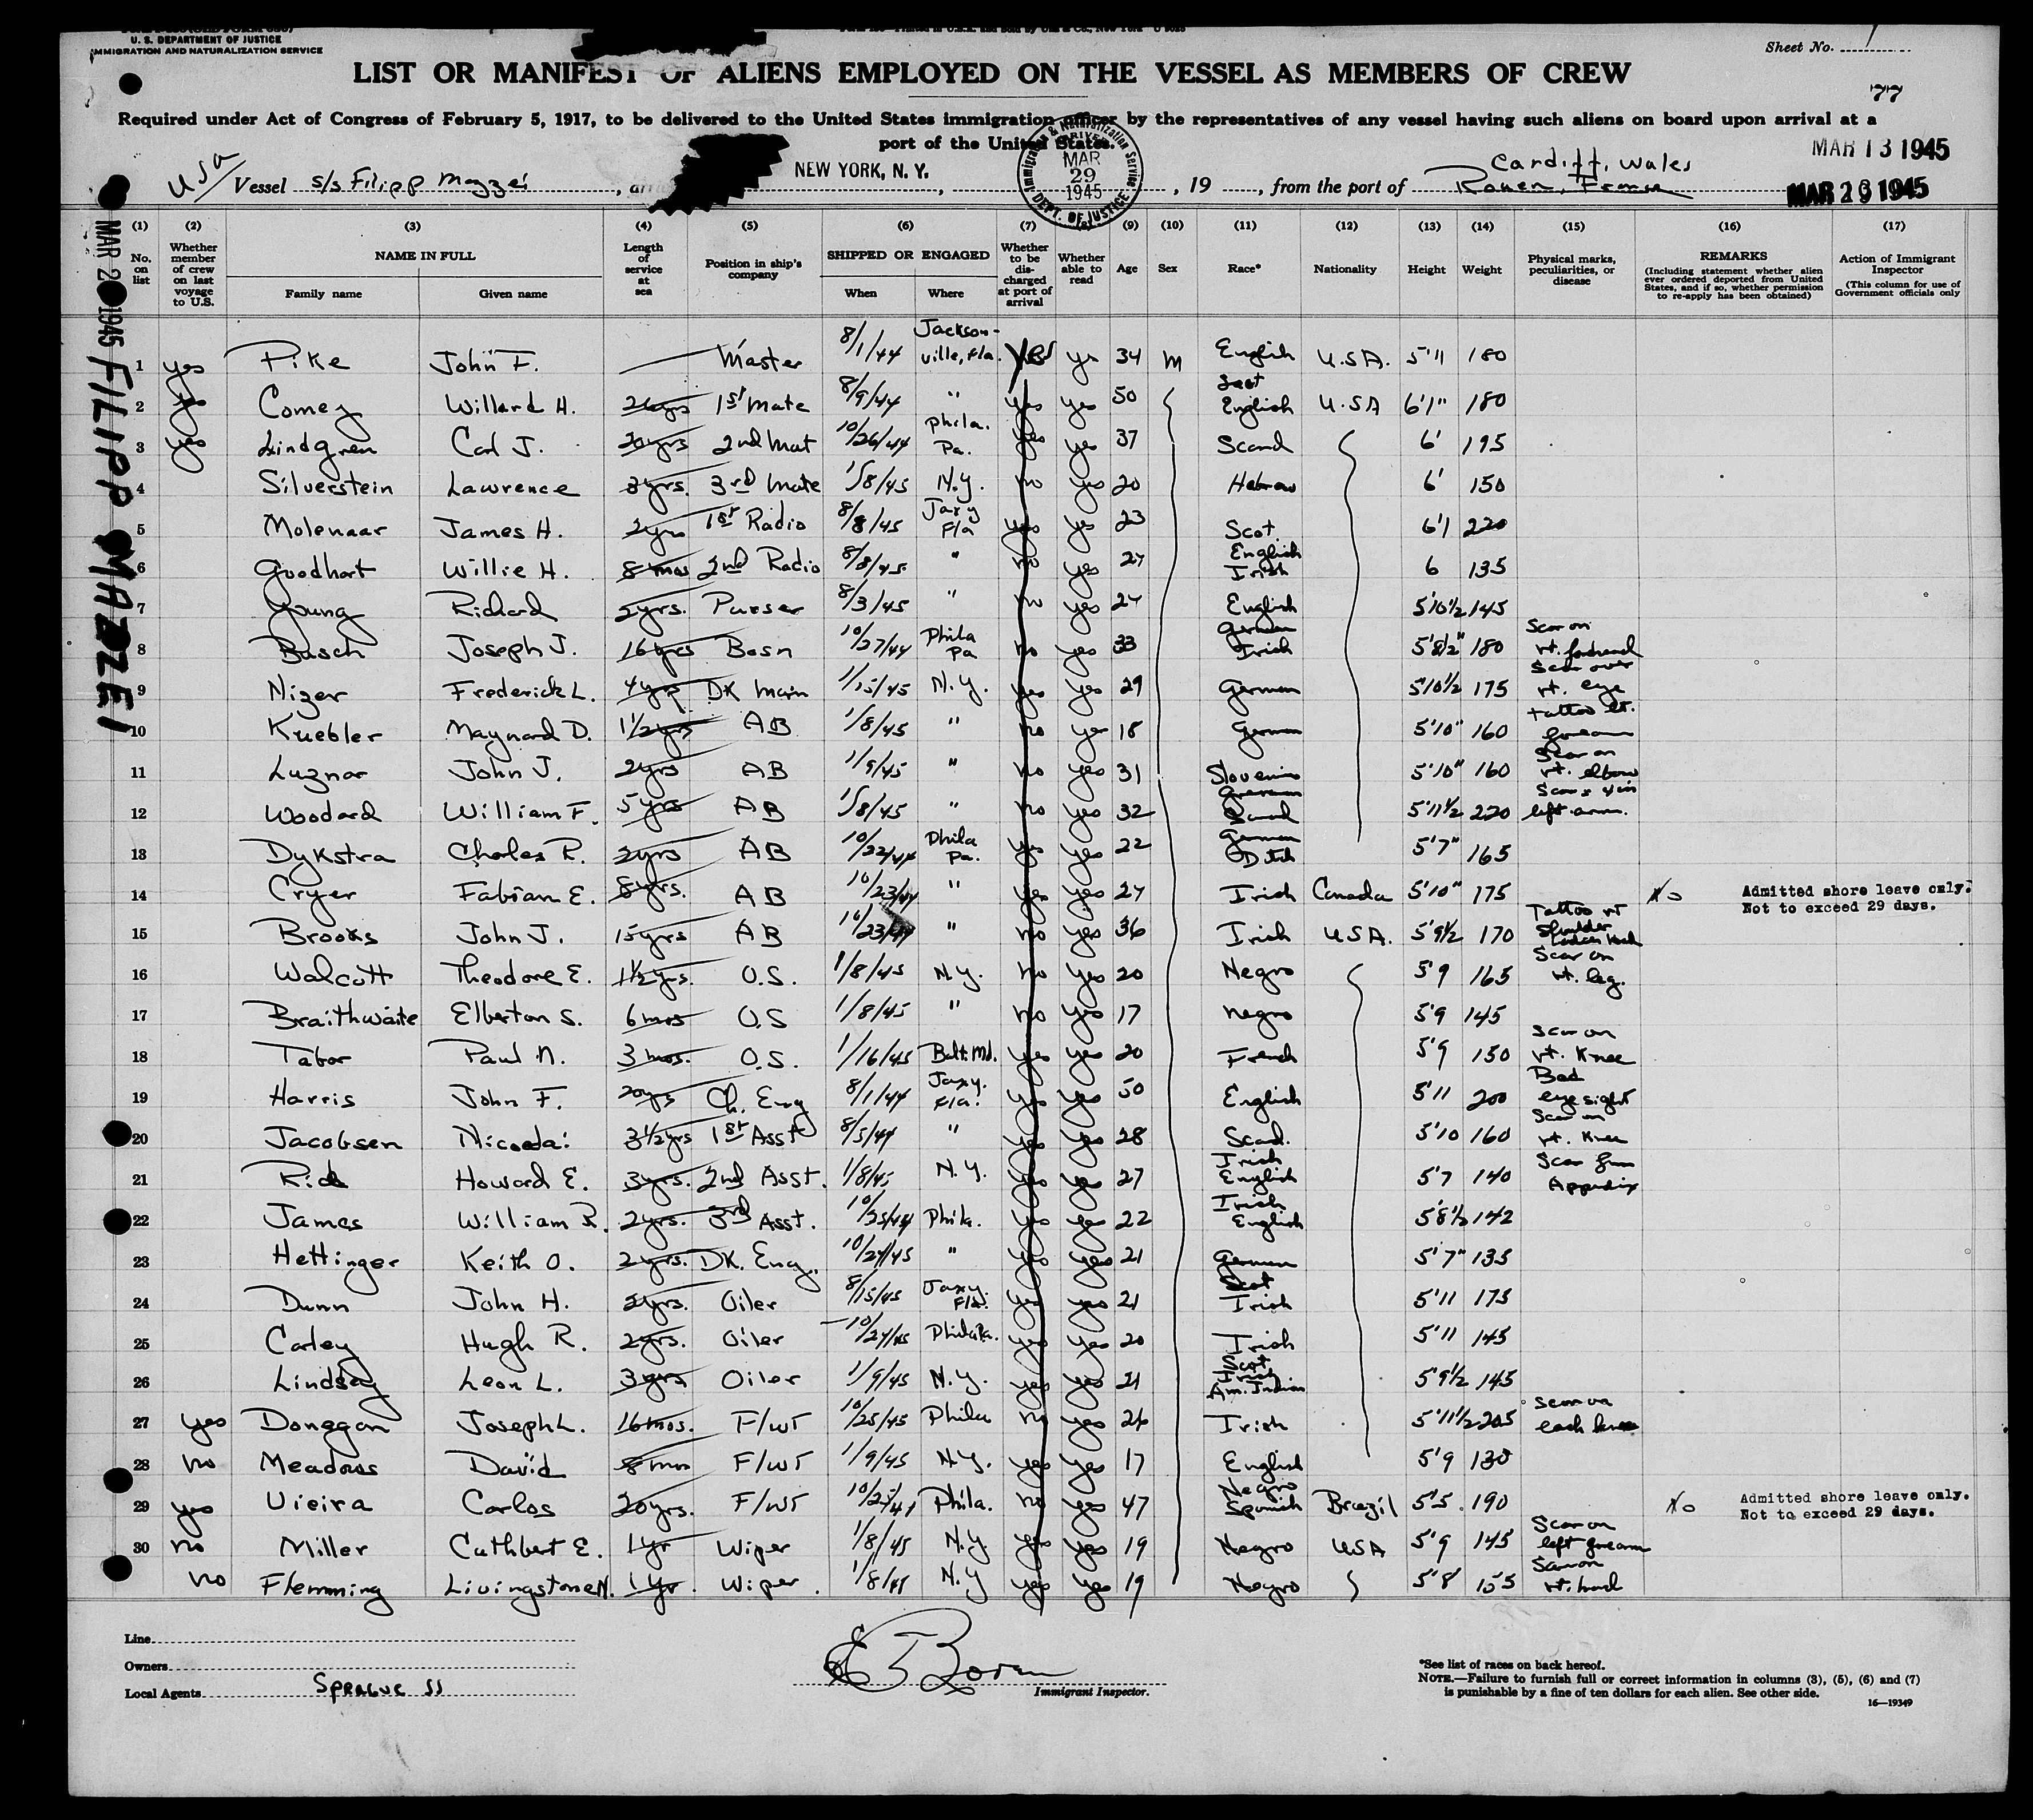 U. S. DEPARTMENT OF JUSTICE
IMMIGRATION AND NATURALIZATION SERVICE
Sheet No. 1
LIST OR MANIFEST OF ALIENS EMPLOYED ON THE VESSEL AS MEMBERS OF CREW
77
Required under Act of Congress of February 5, 1917, to be delivered to the United States immigration officer by the representatives of any vessel having such aliens on board upon arrival at a
port of the United States.
MAR 13 1945
Cardiff, Wales
USA Vessel S/S Filipp Mazzei, NEW YORK, N. Y., 19, from the port of Rouen, France
MAR 29 1945
Immigration & Naturalization Service
MAR
29
1945
DEPT. OF JUSTICE
MAR 20 1945 FILIPP MAZZEI
(1) (2) (3) (4) (5) (6) (7) (9) (10) (11) (12) (13) (14) (15) (16) (17)
No. on list
Whether member of crew on last voyage to U.S.
NAME IN FULL
Family name Given name
Length of service at sea
Position in ship's company
SHIPPED OR ENGAGED
When Where
Whether to be discharged at port of arrival
Whether able to read
Age
Sex
Race*
Nationality
Height
Weight
Physical marks, peculiarities, or disease
REMARKS
(Including statement whether alien ever ordered deported from United States, and if so, whether permission to re-apply has been obtained)
Action of Immigrant Inspector
(This column for use of Government officials only
1 yes Pike John F. Master 8/1/44 Jacksonville, Fla. yes yes 34 M English U.S.A. 5'11 180
2 yes Comey Willard H. 26yrs 1st Mate 8/9/44 " yes yes 50 Scot English U.S.A 6'1" 180
3 yes Lindgren Carl J. 20yrs 2nd Mat 10/26/44 Phila. Pa. yes yes 37 Scand 6' 195
4 Silverstein Lawrence 3yrs. 3rd Mate 1/8/45 N.Y. no yes 20 Hebrew 6' 150
5 Molenaar James H. 2yrs 1st Radio 8/8/45 Jaxy Fla yes yes 23 Scot. 6'1 220
6 Goodhart Willie H. 8 mos 2nd Radio 8/8/45 " no yes 27 English Irish 6 135
7 Young Richard 2yrs. Purser 8/3/45 " no yes 24 English 5'10½ 145
8 Busch Joseph J. 16yrs Bosn 10/27/44 Phila Pa no yes 33 German Irish 5'8½" 180 Scar on rt. forehead
9 Nizer Frederick L. 4yrs DK Main 1/15/45 N.Y. yes yes 29 German 5'10½ 175 Scar over rt. eye
10 Kuebler Maynard D. 1½yrs AB 1/8/45 " no yes 18 German 5'10" 160 tattoo lt. forearm
11 Luznar John J. 2yrs AB 1/9/45 " no yes 31 Slovenian 5'10" 160 Scar on rt. elbow
12 Woodard William F. 5yrs AB 1/8/45 " no yes 32 German 5'11½ 220 left arm.
13 Dykstra Charles R. 2yrs AB 10/22/44 Phila Pa. yes yes 22 German Dutch 5'7" 165
14 Cryer Fabian E. 8yrs. AB 10/23/44 " yes yes 27 Irish Canada 5'10" 175 No Admitted shore leave only. Not to exceed 29 days.
15 Brooks John J. 15yrs AB 10/23/44 " no yes 36 Irish U.S.A. 5'9½ 170 Tattoo rt shoulder
16 Walcott Theodore E. 1½yrs. O.S. 1/8/45 N.Y. no yes 20 Negro 5'9 165 Scar on rt. leg.
17 Braithwaite Elberton S. 6 mos O.S 1/8/45 " no yes 17 Negro 5'9 145
18 Tabor Paul N. 3 mos. O.S. 1/16/45 Balt. Md. yes yes 20 French 5'9 150 Scar on rt. Knee
19 Harris John F. 20yrs Ch. Eng 8/1/44 Jaxy. Fla. yes yes 50 English 5'11 200 Bad eyesight
20 Jacobsen Nicodai 3½yrs 1st Asst 8/5/44 " yes yes 28 Scand. 5'10 160 Scar on rt. Knee
21 Howard E. 3yrs. 2nd Asst. 1/8/45 N.Y. yes yes 27 Irish English 5'7 140 Scar from Appendix
22 James William R. 2yrs. 3rd Asst. 10/25/44 Phila. yes yes 22 Irish English 5'8½ 142
23 Hettinger Keith O. 2yrs. DK. Eng. 10/24/45 " yes yes 21 German 5'7" 135
24 Dunn John H. 2yrs. Oiler 8/15/45 Jaxy. Fla. yes yes 21 Scot Irish 5'11 175
25 Carley Hugh R. 2yrs. Oiler 10/24/45 Phila Pa. yes yes 20 Irish 5'11 145
26 Lindsay Leon L. 3yrs Oiler 1/9/45 N.Y. yes yes 21 Scot Irish Am. Indian 5'9½ 145
27 yes Donegan Joseph L. 16mos. F/WT 10/25/45 Phila no yes 26 Irish 5'11½ 205 Scar on each knee
28 no Meadows David 8 mos F/WT 1/9/45 N.Y. yes yes 17 English 5'9 130
29 yes Vieira Carlos 20yrs. F/WT 10/25/44 Phila. no yes 47 Negro Spanish Brazil 5'5 190 No Admitted shore leave only. Not to exceed 29 days.
30 no Miller Cuthbert E. 1yr Wiper 1/8/45 N.Y yes yes 19 Negro USA 5'9 145 Scar on left forearm
no Flemming Livingstone N. 1yr. Wiper. 1/8/45 N.Y yes yes 19 Negro 5'8 155 Scar on rt. hand
Line
Owners
Local Agents Sprague SS
Immigrant Inspector.
*See list of races on back hereof.
NOTE.—Failure to furnish full or correct information in columns (3), (5), (6) and (7)
is punishable by a fine of ten dollars for each alien. See other side.
16—19349